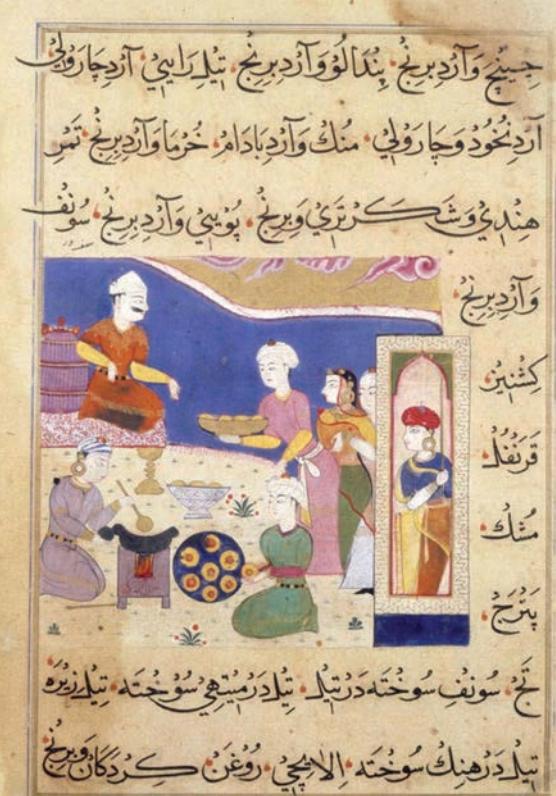 چینچ وَآرْدِ بِرِنْج، پِنْدَالُوْ وَآرْدِ بِرِنْج، تیلِ رَایِیْ، آرْدِ چَارُوْلِیْ
آرْدِ نُخُوْد وَچَارُوْلِیْ، مُنْك وَآرْدِ بَادَام، خُرْمَا وَآرْدِ بِرِنْج، تَمْرِ
هِنْدِيْ وَشَكَرِتَرِيْ وَبِرِنْج، پُوْیِیْ وَآرْدِ بِرِنْج، سُوْنْف
وَآرْدِ بِرِنْج،
كِشْنِیْز،
قَرَنْفُل،
مُشْك،
پَتْرَج،
تَج، سُوْنْفِ سُوْخْتَه دَرْتیل، تیل دَرْ مِیْتْهِيْ سُوْخْتَه، تیل زِیْرَه
تیل دَرْ هِنْك سُوْخْتَه، اِلَایِچِيْ، رُوْغَن كِرْدَكَان وَبِرِنْج